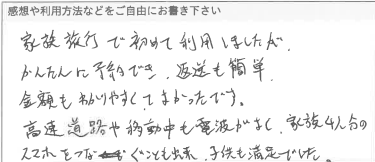 感想や利用方法などをご自由にお書き下さい
家族旅行で初めて利用しましたが、
かんたんに予約でき、返送も簡単、
金額もわかりやすくてよかったです。
高速道路や移動中も電波がよく、家族4人分の
スマホをつなぐことも出来、子供も満足でした。